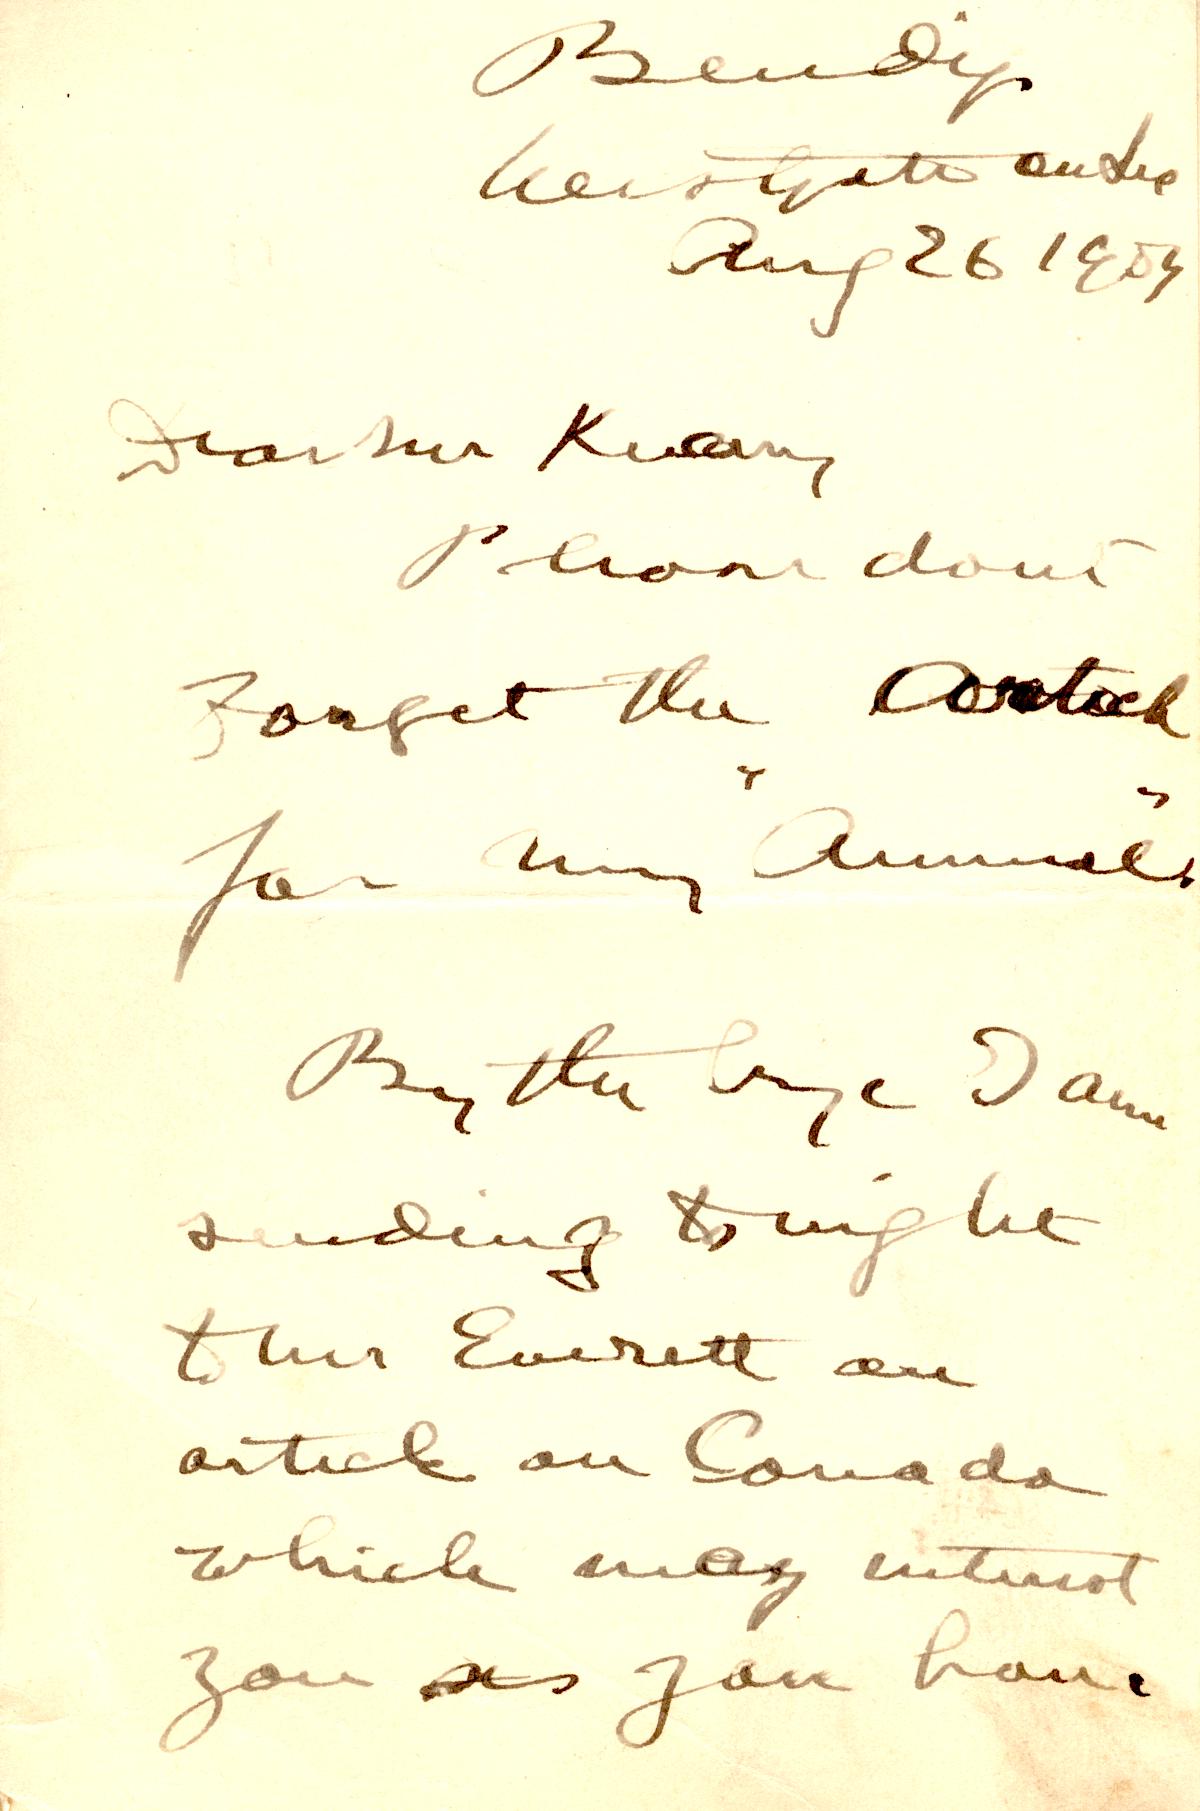 Bendigo
Westgate on Sea
Aug 26 190
Dear Mr Keary
Please dont
Forget the Article
for my "Annual".
By the bye I am
sending to night
to Mr Everett an
article on Canada
which may interest
you as you have